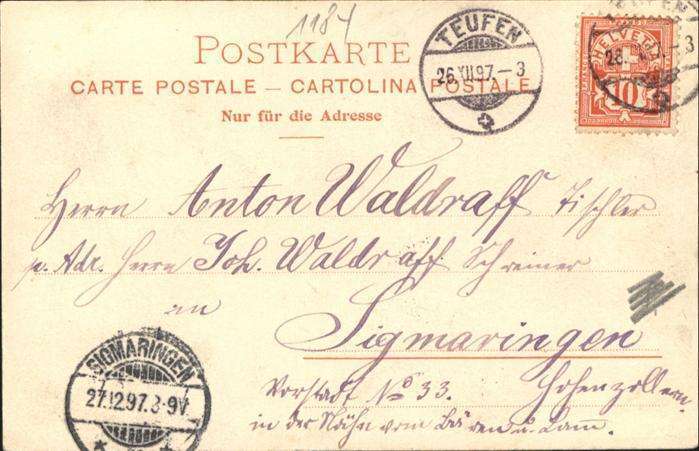 1184
POSTKARTE
CARTE POSTALE — CARTOLINA POSTALE
Nur für die Adresse
TEUFEN
26.XII.97.–3
HELVETIA
10
28.
–3
Herrn Anton Waldraff Tischler
p. Adr. Herrn Joh. Waldraff Schreiner
in
Sigmaringen
Vorstadt No 33. Hohenzollern.
in der Nähe vom Bären u. Lam.
SIGMARINGEN
27.12.97. 8-9V.